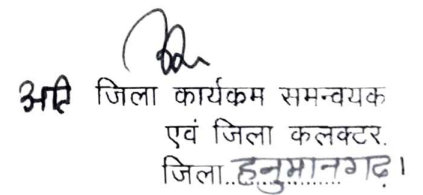 अति जिला कार्यकम समन्वयक
एवं जिला कलक्टर.
जिला..हनुमानगढ़।